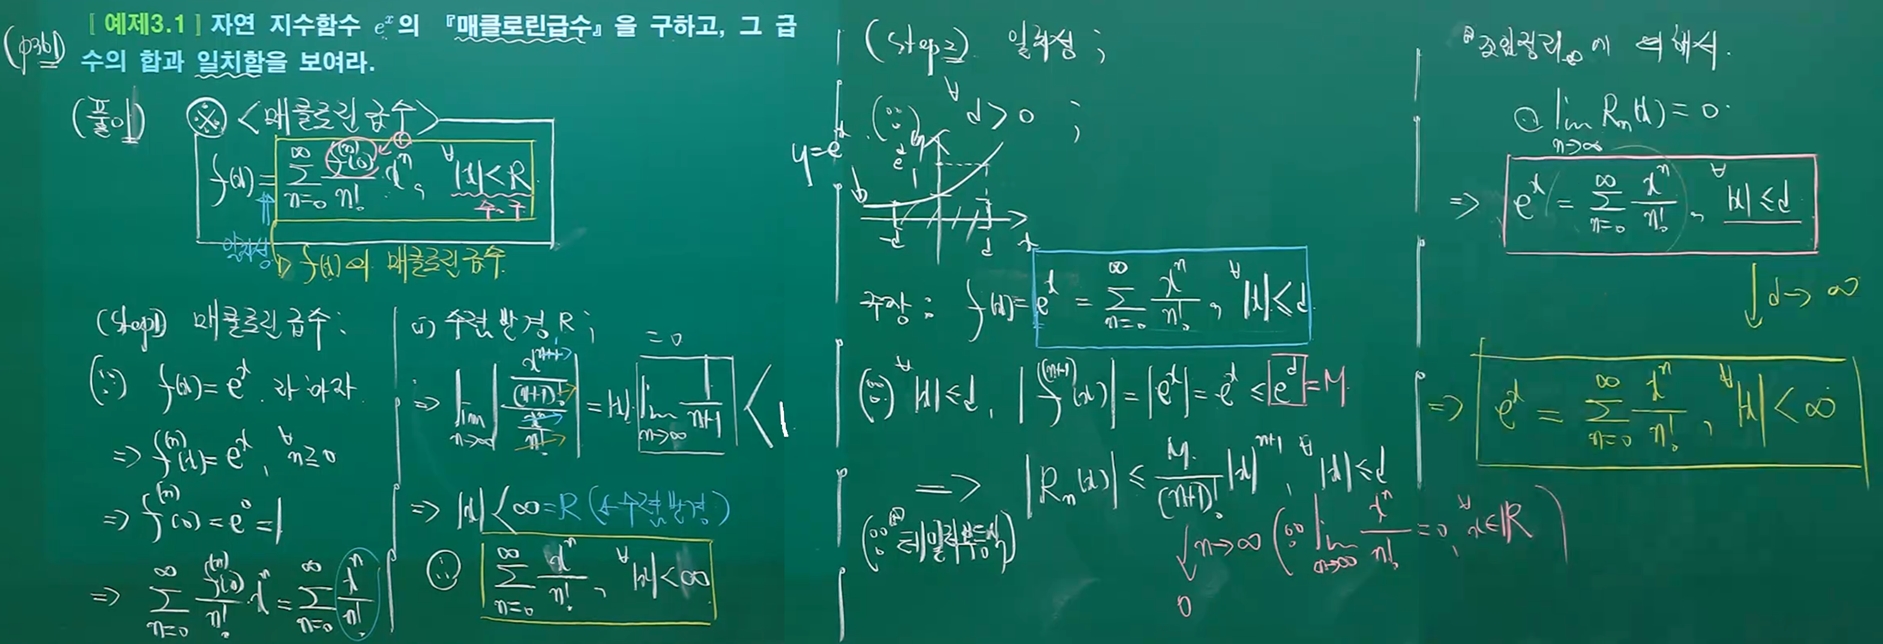 [예제3.1] 자연 지수함수 e^x 의 『매클로린급수』을 구하고, 그 급
수의 합과 일치함을 보여라.
(p36)
(풀이) ※ <매클로린 급수>
f(x) = ∑_{n=0}^{∞} f^{(n)}(0)/n! · x^n, ∀|x| < R
수.반
일치성 f(x)의 매클로린급수
(step1) 매클로린급수 ;
(∵) f(x) = e^x 라 하자.
⇒ f^{(n)}(x) = e^x, ∀n ≥ 0
⇒ f^{(n)}(0) = e^0 = 1
⇒ ∑_{n=0}^{∞} f^{(n)}(0)/n! x^n = ∑_{n=0}^{∞} x^n/n!
(ii) 수렴반경 R ;
⇒ lim_{n→∞} | (x^{n+1}/(n+1)!) / (x^n/n!) | = |x| · lim_{n→∞} 1/(n+1) < 1
= 0
⇒ |x| < ∞ = R (수렴반경)
∴ ∑_{n=0}^{∞} x^n/n!, ∀|x| < ∞
(step2) 일치성 ;
(∵) ∀d > 0 ;
y = e^x
e^d
1
-d d x
주장 : f(x) = e^x = ∑_{n=0}^{∞} x^n/n!, ∀|x| ≤ d
(∵) ∀|x| ≤ d, |f^{(n+1)}(x)| = |e^x| = e^x ≤ e^d = M
⇒ |R_n(x)| ≤ M/(n+1)! |x|^{n+1}, ∀|x| ≤ d
(∵ 테일러부등식)
↓ n→∞ (∵ lim_{n→∞} x^n/n! = 0, ∀x∈ℝ)
0
에 의해서.
lim_{n→∞} R_n(x) = 0
⇒ e^x = ∑_{n=0}^{∞} x^n/n!, ∀|x| ≤ d
↓ d → ∞
⇒ e^x = ∑_{n=0}^{∞} x^n/n!, ∀|x| < ∞